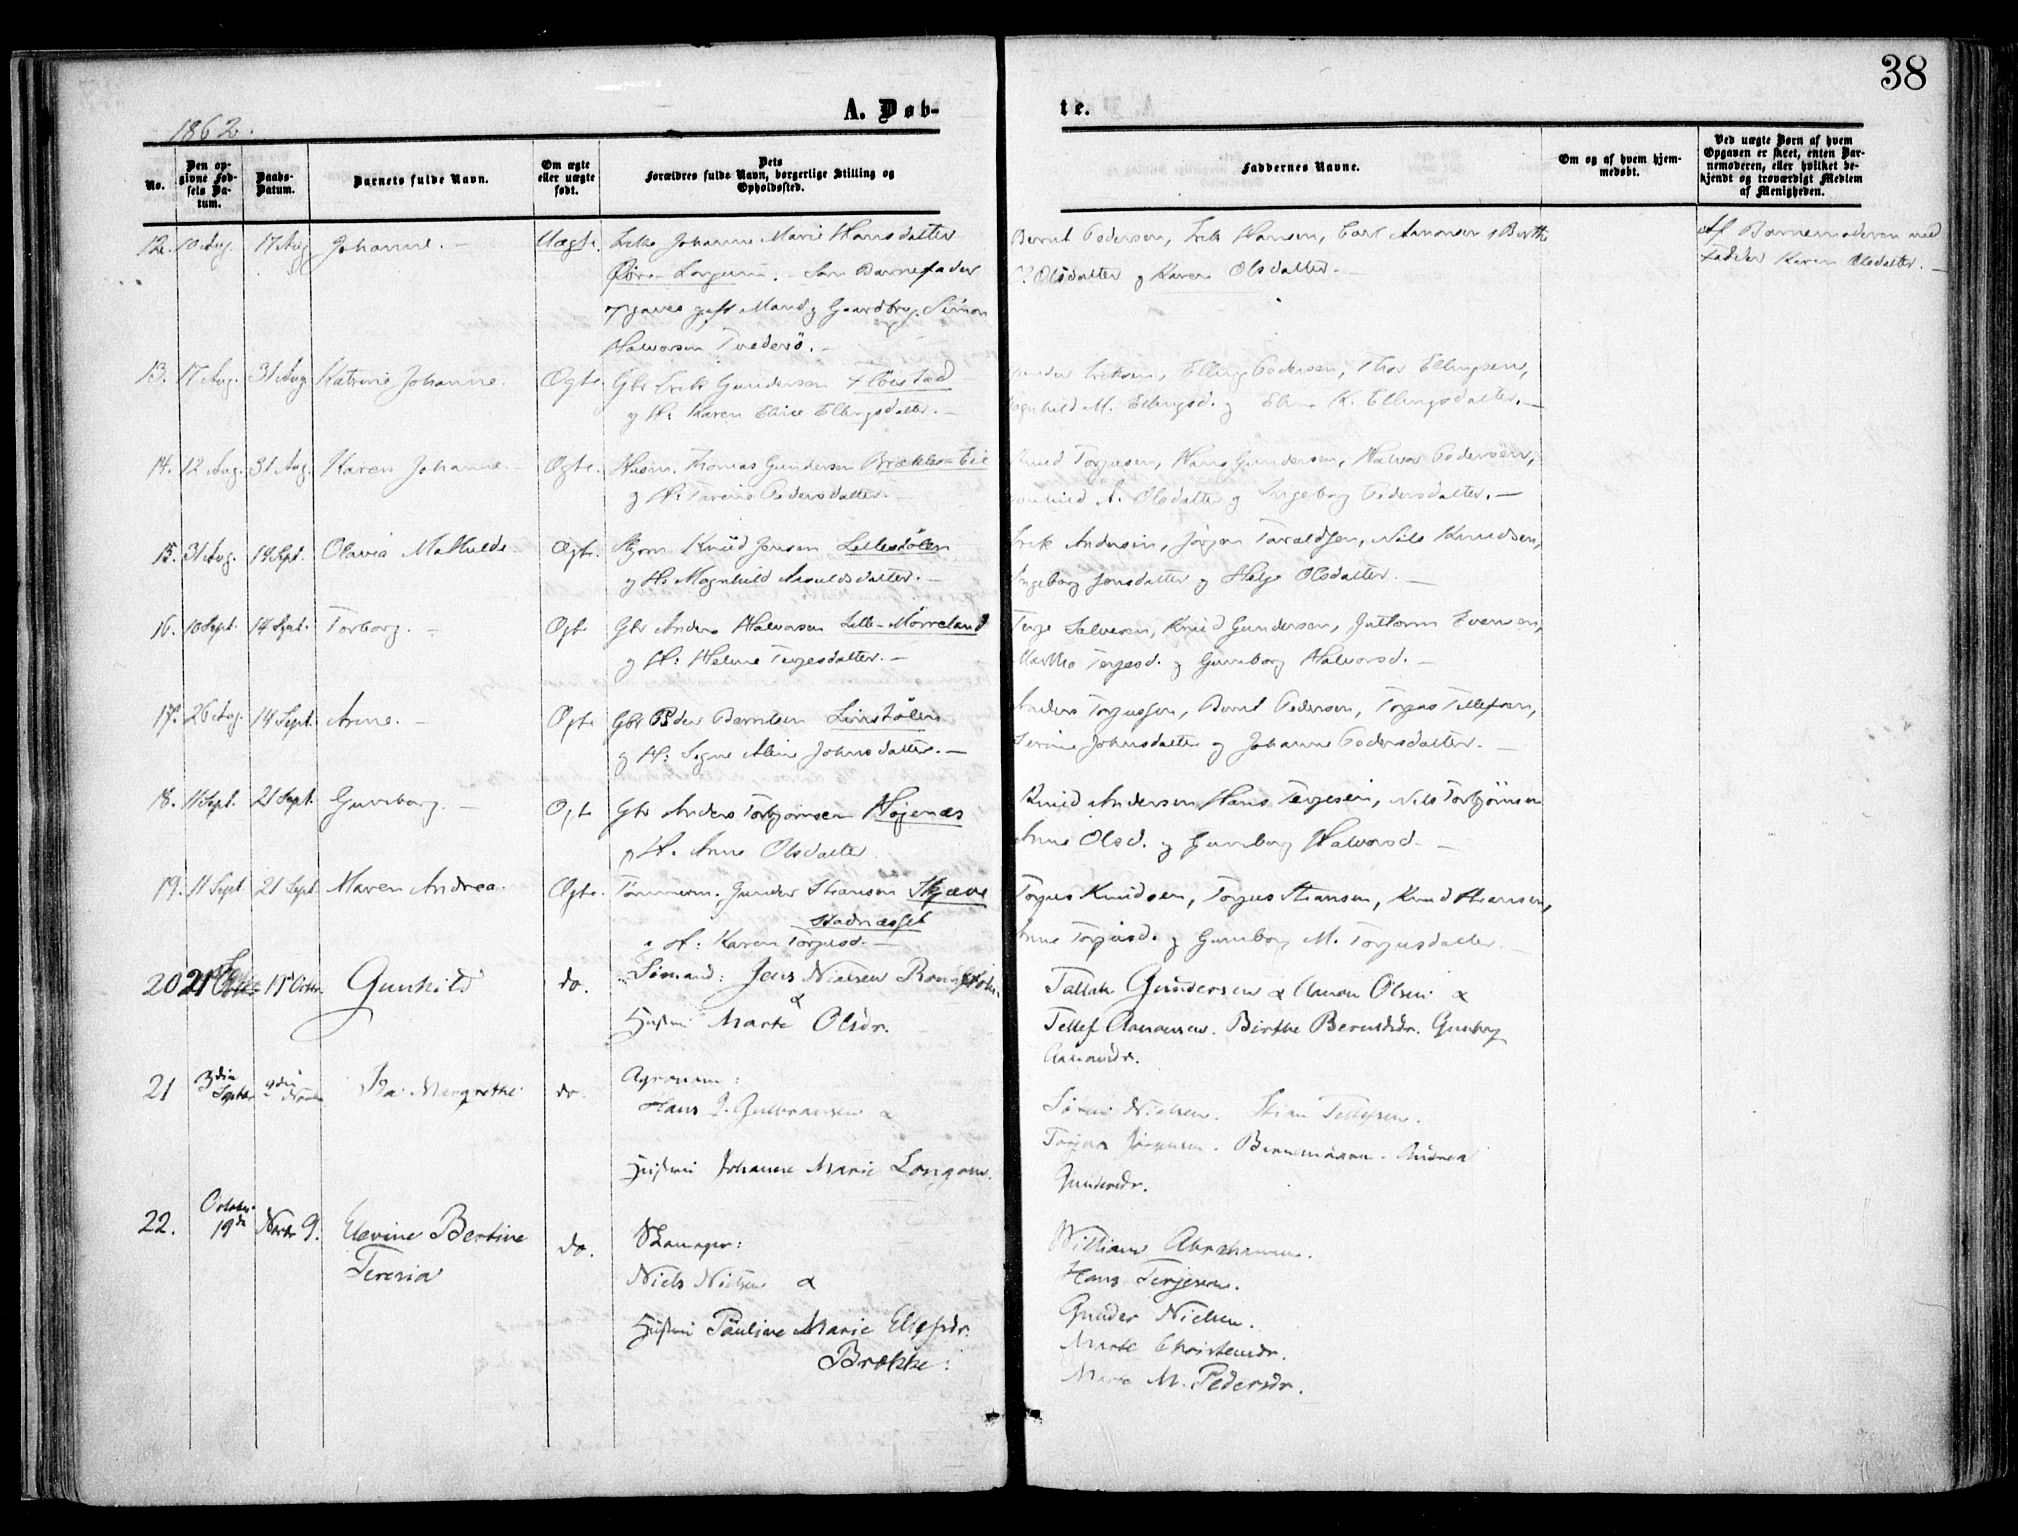 38
A. Døb-
te.
1862.
No.
Den op-
givne Fød-
sels Da-
tum.
Daabs-
Datum.
Barnets fulde Navn.
Om ægte
eller uægte
født.
Dets
Forældres fulde Navn, borgerlige Stilling og
Opholdssted.
Faddernes Navne.
Om og af hvem hjem-
medøbt.
Ved uægte Børn af hvem
Opgaven er skeet, enten Bar-
nemoderen, eller hvilket be-
kjendt og troværdigt Medlem
af Menigheden.
12. 10 Aug. 17 Aug Johanne. — Uægte. Johanne Marie Hansdatter
Longum. — Barnefader
opgaves gift Mand og Gaardbrg. Simon
Halvorsen Tvederö. —
Bernt Pedersen, Erik Hansen, Carl Aanonsen, Berthe
Olsdatter og Karen Olsdatter. —
Af Barnemoderen med
Fadder Karen Olsdatter. —
13. 17 Aug. 31 Aug Katrine Johanne. Ægte. Gbr Erik Gundersen Flöistad
og H: Karen Eline Ellingsdatter. —
Eriksen, Elling Pedersen, Thor Ellingsen,
M. Ellingsd. og K. Ellingsdatter. —
14. 12 Aug. 31 Aug. Karen Johanne. — Ægte. Husm. Thomas Gundersen Brække-Eie
og H: Pedersdatter. —
Knud Torjusen, Hans Gundersen, Halvor Pedersen,
Gunhild A. Olsdatter og Ingeborg Pedersdatter. —
15. 31 Aug. 14 Sept. Olavia Mathilde. Ægte. Knud Jensen Lillestölen
og H: Magnhild Arnoldsdatter. —
Erik Andersen, Jörgen Taraldsen, Nils Knudsen,
Ingeborg Jonsdatter og Helje Olsdatter. —
16. 10 Sept. 14 Sept. Torborg. — Ægte Gbr Anders Halvorsen Lille-Mörreland
og H: Helene Terjesdatter. —
Terje Salvesen, Knud Gundersen, Guttorm Evensen,
Martha Terjesd. og Gunborg Halvorsd. —
17. 26 Aug. 14 Sept. Anne. — Ægte Gbr Peder Berntsen Linstölen
og H: Signe Aline Johnsdatter. —
Anders Torjussen, Bernt Pedersen, Torjus Tellefsen,
Serine Johnsdatter og Johanne Pedersdatter. —
18. 11 Sept. 21 Sept. Gunborg. — Ægte Gbr Anders Torbjörnsen Højenæs
og H. Anne Olsdatter
Knud Andersen, Hans Terjesen, Nils Torbjörnsen
Anne Olsd. og Gunborg Halvorsd. —
19. 11 Sept. 21 Sept. Maren Andrea. Ægte. Tömmerm. Gunder Stiansen Skjæve
stadnæsset
og H: Karen Torjusd. —
Torjus Knudsen, Torjus Stiansen, Knud Stiansen,
Anne Torjusd. og Gunborg M. Torjusdatter. —
20 21 Sept 19 Octbr. Gunhild do. Sömand: Jens Nielsen
&
Hustru Marte Olsdr.
Tallak Gundersen & Aanon Olsen &
Tellef Aanonsen. Birthe Berntsdr. Gunborg
Aanonsdr.
21 3die Septbr 9die Novbr Ida Margrethe do. Agronom:
Hans J. Gulbransen &
Hustru Johanne Marie Longum.
Sören Nielsen. Stian Tellefsen.
Torjus Jörgensen. Barnemoderen. Andrea
Gundersdr.
22. October 19de Novbr 9. Elevine Bertine
Teresia do.
Niels Nielsen &
Hustru Pauline Marie Ellefsdr.
Brække:
William Abrahamsen.
Hans Terjesen.
Gunder Nielsen.
Marte Christensdr.
Marte M. Pedersdr.